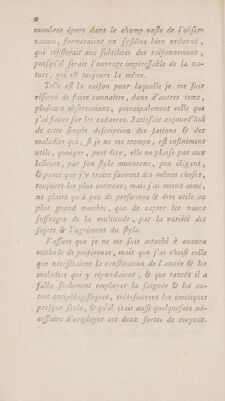 membres épars dans le champ vaste de l'obser-
vation, formeraient un systême bien ordonné,
qui resisterait aux subtilités des raisonnemens,
puisqu'il serait l'ouvrage impérissable de la na-
ture, qui est toujours la même.
Telle est la raison pour laquelle je me suis
efforcé de faire connaître, dans d'autres tems,
plusieurs observations, principalement celle que
j'ai faites sur les cadavres. Satisfait aujourd'hui
de cette simple description des saisons & des
maladies qui, si je ne me trompe, est infiniment
utile, quoique, peut être, elle ne plaise pas aux
lecteurs, par son style monotone, peu élégant,
& parce que j'y traite souvent des mêmes choses,
toujours les plus connues; mais j'ai mieux aimé,
ne plaire qu'à peu de personnes & être utile au
plus grand nombre, que de capter les vains
suffrages de la multitude, par la variété des
sujets & l'agrément du style.
J'assure que je ne me suis attaché à aucune
méthode de préférence, mais que j'ai choisi celle
que nécessitaient la constitution de l'année & les
maladies qui y répondaient, & que tantôt il a
fallu seulement employer la saignée & les au-
tres antiphlogistiques, très-souvent les émétiques
presque seuls, & qu'il était aussi quelquefois né-
cessaire d'employer ces deux sortes de moyens.